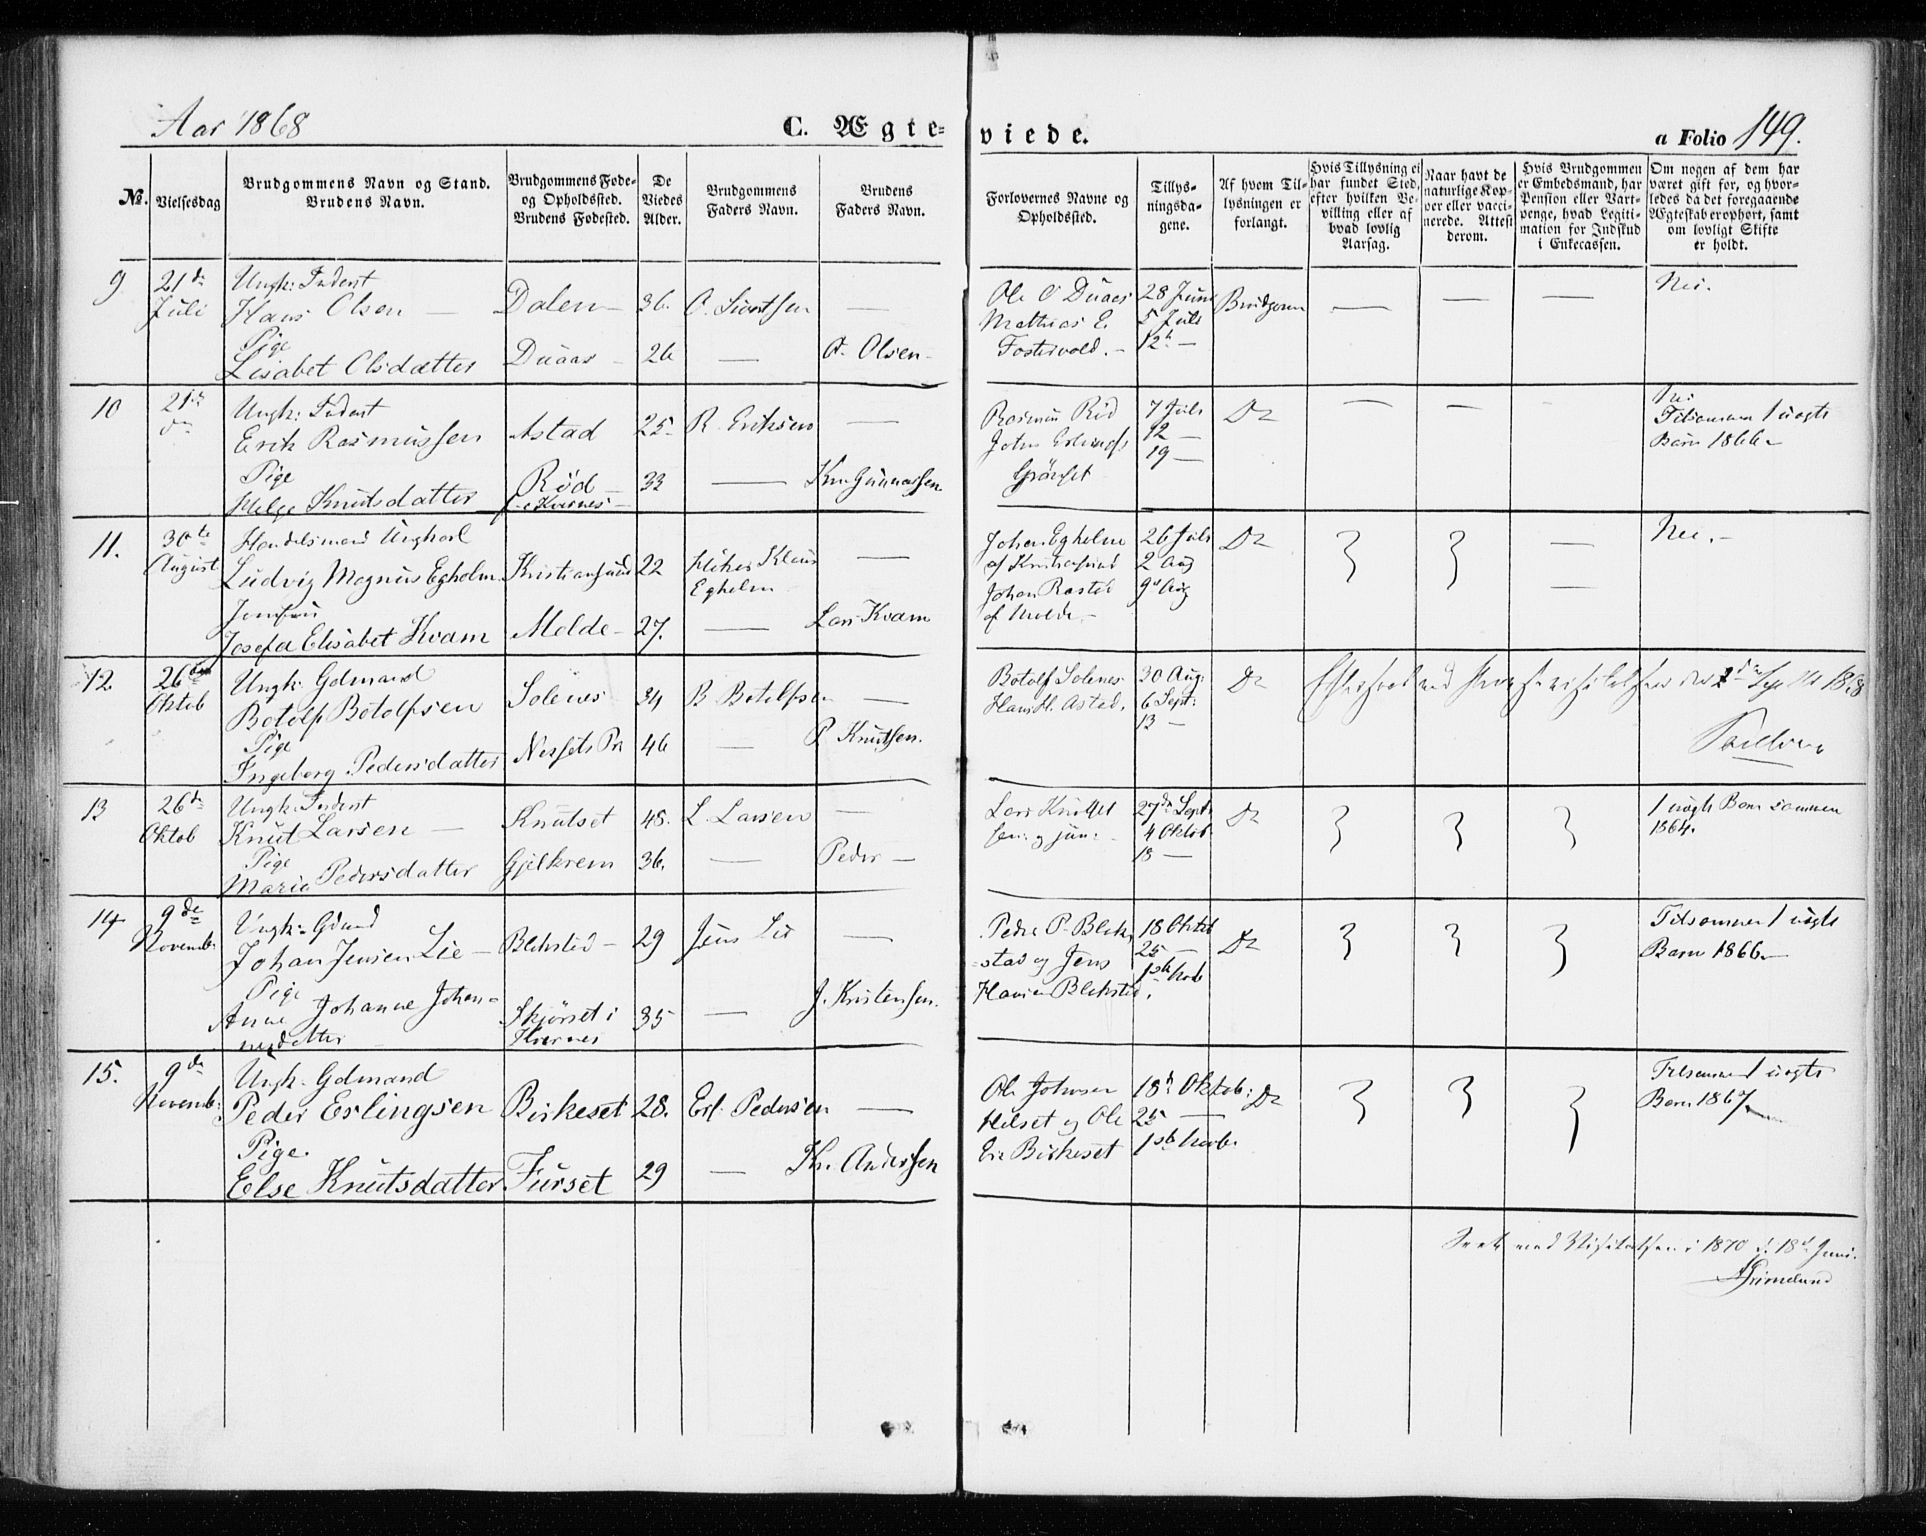 Aar 1868
C. Ægteviede.
a Folio 149.
No.
Vielsesdag
Brudgommens Navn og Stand.
Brudens Navn.
Brudgommens Føde-
og Opholdssted.
Brudens Fødested.
De
Viedes
Alder.
Brudgommens
Faders Navn.
Brudens
Faders Navn.
Forlovernes Navne og
Opholdssted.
Tillys-
ningsda-
gene.
Af hvem Til-
lysningen er
forlangt.
Hvis Tillysning ei
har fundet Sted,
efter hvilken Be-
villing eller af
hvad lovlig
Aarsag.
Naar havt de
naturlige Kop-
per eller vacci-
nerede. Attest
derom.
Hvis Brudgommen
er Embedsmand, har
Pension eller Vart-
penge, hvad Legiti-
mation for Indskud
i Enkecassen.
Om nogen af dem har
været gift før, og hvor-
ledes da det foregaaende
Ægteskab er ophørt, samt
om lovligt Skifte
er holdt.
9 21de Juli
Ungk: Inderst
Hans Olsen — Dalen 36. O. Sivertsen —
Pige
Lisabet Olsdatter Duaas — 26 — O. Olsen —
Ole O Duaas 28 Juni Brudgom — — — Nei.
Mathias E. 5 Juli
Fostervold. — 12te —
10 21de do
Ungk: Inderst
Erik Rasmussen Astad 25 R. Eriksen —
Pige
Helge Knutsdatter Rød — 33 — Kn. Gunnarsen
Kvernes —
Rasmus Rød 7 Juli Do — — — Nei
John Erlingss 12 — Tilsammen 1 uægte
19 — Barn 1866 —
11. 30te August
Handelsmand Ungkarl
Ludvig Magnus Egholm Kristiansund 22 Klaus —
Egholm
Jomfru
Josefa Elisabet Kvam Molde — 27. — Lars Kvam
Johan Egholm 26 Juli Do — Nei. —
af Kristiansund 2 Aug
Johan 9de Aug —
af Molde. —
12. 26de Oktob
Ungk: Gdmand
Botolf Botolfsen Solenes 34 B Botolfsen —
Pige
Ingeborg Pedersdatter Nessets Pr 46 — P Knutsen.
Botolf Solenes 30 Aug: Do
Hans H. Astad. 6 Sept:
13 —
1868
13 26de Oktob
Ungk: Inderst
Knut Larsen — Knutset 48. L. Larsen —
Pige
Marie Pedersdatter Gjelkrem 36. — Peder —
Lars Knutset 27de Sept: Do 1 uægte Barn sammen
sen: og jun: — 4 Oktob 1864.
18 —
14 9de Novemb:
Ungk: Gdmd
Johan Jensen Lie — Blekstad — 29 Jens Lie —
Pige
Anne Johanne Johan-
nesdatter Skjørset i 35 — J. Kristensen.
Kvernes
Peder P. Blek- 18 Oktob Do Tilsammen 1 uægte
stad og Jens 25 — Barn 1866 —
Hansen Blekstad. 1ste Nov
15. 9de Novemb:
Ungk. Gdmand
Peder Erlingsen Birkeset 28. Erl. Pedersen —
Pige.
Else Knutsdatter Furset 29 — Kn. Andersen
Ole Johnsen 18de Oktob: Do Tilsammen 1 uægte
Helset og Ole 25 — Barn 1867 —
Er. Birkeset 1ste Novb.
Seet ved Visitatsen i 1870 d. 18de Juni.
Grimelund